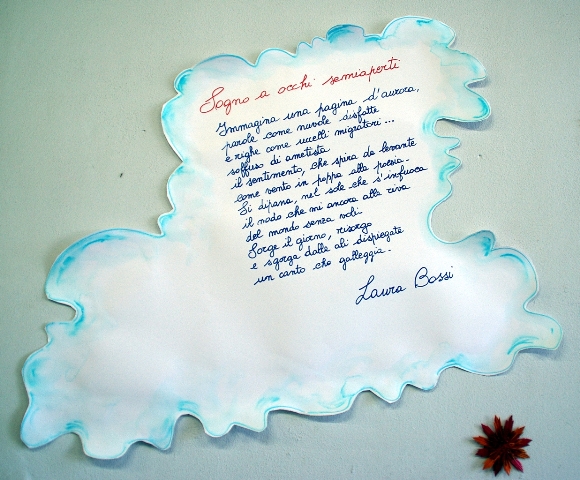 Sogno a occhi semiaperti
Immagina una pagina d'aurora,
parole come nuvole disfatte
e righe come uccelli migratori...
soffuso di ametista
il sentimento, che spira da levante
come vento in poppa alla poesia.
Si dipana, nel sole che s'infuoca
il nodo che mi ancora alla riva
del mondo senza voli.
Sorge il giorno, risorgo
e sgorga dalle ali dispiegate
un canto che galleggia.
Laura Bossi